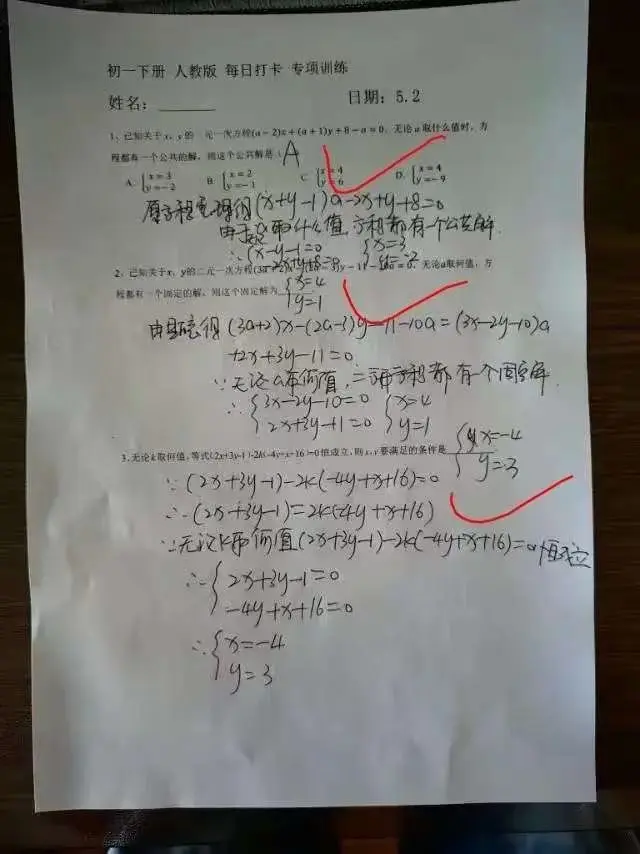 初一下册 人教版 每日打卡 专项训练
姓名：______ 日期：5.2
1、已知关于x、y的二元一次方程(a-2)x+(a+1)y+8-a=0，无论a取什么值时，方
程都有一个公共的解，则这个公共解是（A
A. {x=3 y=-2 B. {x=2 y=-1 C. {x=4 y=6 D. {x=4 y=-9
原方程整理得(x+y-1)a-2x+y+8=0
由于a取什么值,方程都有一个公共解.
∴{x-y-1=0 {x=3
2、已知关于x、y的二元一次方程 无论a取何值，方
程都有一个固定的解，则这个固定解为 {x=4 y=1
(3a+2)x-(2a-3)y-11-10a=(3x-2y-10)a
+2x+3y-11=0
∵无论a取何值,二元方程都有一个固定解.
∴{3x-2y-10=0 {x=4
2x+3y-11=0 y=1
3、无论k取何值，等式(2x+3y-1)-2k(-4y+x+16)=0恒成立，则x、y要满足的条件是 {x=-4 y=3
∵(2x+3y-1)-2k(-4y+x+16)=0
∴(2x+3y-1)=2k(-4y+x+16)
∵无论k取何值(2x+3y-1)-2k(-4y+x+16)=0恒成立
∴{2x+3y-1=0
-4y+x+16=0
∴{x=-4
y=3